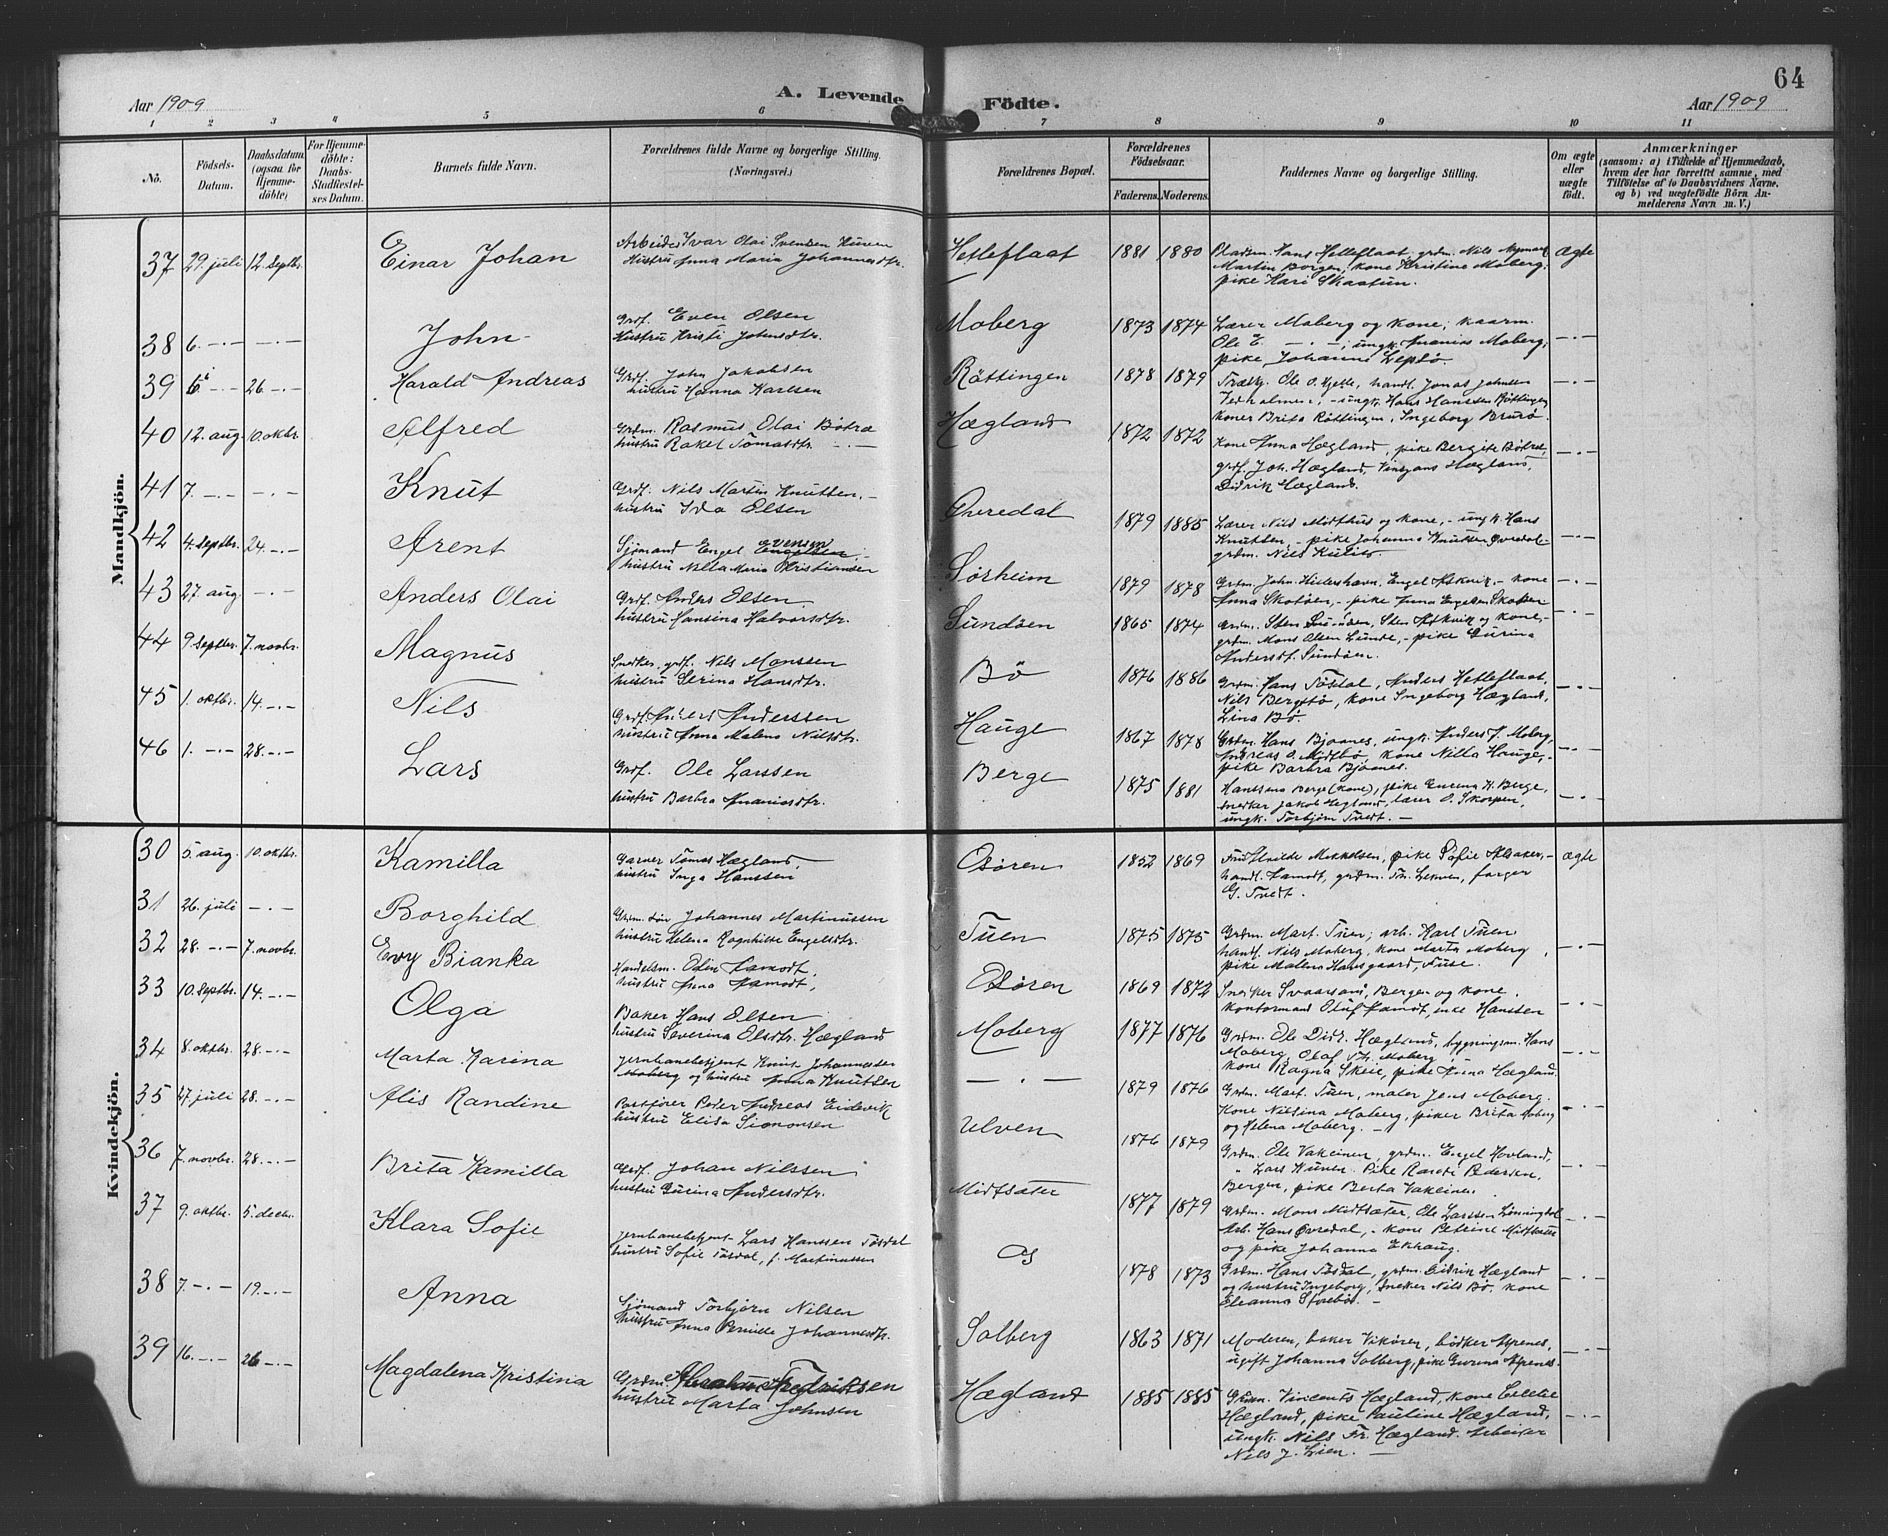 64
Aar 1909
A. Levende Födte.
Aar 1909
1 2 3 4 5 6 7 8 9 10 11
No.
Födsels-Datum.
Daabsdatum (ogsaa for Hjemmedöbte)
For Hjemmedöbte: Daabs-Stadfæstelses Datum.
Barnets fulde Navn.
Forældrenes fulde Navne og borgerlige Stilling. (Næringsvei.)
Forældrenes Bopæl.
Forældrenes Födselsaar.
Faderens. Moderens.
Faddernes Navne og borgerlige Stilling.
Om ægte eller uægte födt.
Anmærkninger
(saasom: a) i Tilfælde af Hjemmedaab, hvem der har forrettet samme, med Tilföielse af to Daabsvidners Navne. og b) ved uægtefödte Börn Anmelderens Navn m. V.)
Mandkjön.
37 29. juli 12. Septbr. Einar Johan
Arbeider Ivar Olai Svendsen
Hustru Anna Maria Johannesdtr.
Hetleflaat 1881 1880
Pladsm. Hans Hetleflaat, grdm. Nils
Martin Borgen, kone Kristine Moberg,
pike Kari Skaatun.
ægte
38 6. -"- -"- John
Grdf. Even Olsen
Hustru Kristi Johnsdtr.
Moberg 1873 1874
Lærer Moberg og kone;
Ole E. -"-; ungk. Ananias Moberg,
pike Johanne Lepsø
-"-
39 6. -"- 26. -"- Harald Andreas
Grdf. John Jakobsen
hustru Hanna Karlsen
Röttingen 1878 1879
handl. Jonas Johnsen
ungk. Hans Hanssen Röttingen
koner Brita Röttingen, Ingeborg Brurø
-"-
40 12. aug. 10. oktbr. Alfred
Grdm. Rasmus Olai Böbra
hustru Rakel Tomasdtr. -"-
Hægland 1872 1872
Kone Anna Hægland, pike Bergite
grdf. Joh. Hægland, Hægland,
Didrik Hægland.
-"-
41 7. -"- -"- Knut
Grdf. Nils Martin Knutsen,
hustru Ida Olsen
Øvredal 1879 1885
Lærer Nils Midthus og kone, ungk. Hans
Knutsen, pike Johanna Knutsen Øvredal
grdm. Nils
-"-
42 4. Septbr. 24. -"- Arent
Sjömand Engel Evensen
hustru Nilla Maria Kristiansen
Sörheim 1879 1878
Grdm. John Engel Askvik, kone
Anna Skorpen, pike Anna Engelsen Skorpen
-"-
43 27. aug. -"- Anders Olai
Grdf. Anders Olsen
hustru Hansina Halvorsdtr.
Sundöen 1865 1874
Grdm. Sten Sundöen, Sten Askvik og kone,
grdm. Mons Olsen Lunde, pike Gurina
Andersdt. Sundöen.
-"-
44 9. Septbr. 7. novbr. Magnus
Snekker, grdf. Nils Monssen
hustru Serina Hansdtr.
Bø 1876 1886
Grdm. Hans Tøsdal, Anders Hetleflaat,
Nils kone Ingeborg Hægland,
Lina Bø.
-"-
45 1. oktbr. 14. -"- Nils
Grdf. Anders Anderssen
hustru Anna Malena Nilsdtr.
Hauge 1867 1878
Grdm. Hans Bjøanes, ungk. Anders J. Moberg,
Andreas O. Midtbø, kone Nilla Hauge,
pike Barbra Bjøanes.
-"-
46 1. -"- 28. -"- Lars
Grdf. Ole Larssen
hustru Barbra Ananiasdtr.
Berge 1875 1881
Hanssena Berge (kone), pike H. Berge,
Snekker Jakob Hegland, lærer O. Skorpen,
ungk. Torbjørn Tvedt.
-"-
Kvindekjön.
30 5. aug. 10. oktbr. Kamilla
Garver Tomas Hægland
hustru Inga Hanssen
Osøren 1852 1869
Fru Hilde Mikkelsen, pike Sofie
handl. Hamodt, grdm. farger
G. Tvedt.
ægte
31 26. juli -"- Borghild
Grdm. søn Johannes Martinussen
hustru Helena Ragnhilde Engelsdtr.
Tuen 1875 1875
Grdm. Mart. Tuen, arb. Karl Tuen
handl. Nils Moberg, kone Marta Moberg,
pike Malena Hansgaard, Fuse.
-"-
32 28. -"- 7. novbr. Evy Bianka
Handelsm. Odin Hamodt,
hustru Anna Hamodt,
Osøren 1869 1872
Snekker Svaarsand, Bergen og kone,
kontormand Oluf Hamodt, enke Hanssen
-"-
33 10. Septbr. 14. -"- Olga
Baker Hans Olsen
hustru Severina Olsdtr. Hægland
Moberg 1877 1876
Grdm. Ole Didr. Hægland, bygningsm. Hans
Moberg, Olaf Moberg,
kone Ragna Skeie, pike Anna Hægland.
-"-
34 8. oktbr. 28. -"- Marta Karina
Jernbanebetjent Knut Johannessen
Moberg og hustru Anna Knutsen
-"- 1879 1876
Grdm. Mart. Tuen, maler Jens Moberg.
Kone Nilsina Moberg, piker Brita Moberg
og Helena Moberg.
-"-
35 27. juli 28. -"- Alis Randine
Postfører Peder Andreas Eidsvik
hustru Elisa Simonsen
Ulven 1876 1879
Grdm. Ole Vakleiven, grdm. Engel Hovland,
" Lars Pike Randi Pedersen,
Bergen, pike Berta Vakleiven.
-"-
36 7. novbr. 28. -"- Brita Kamilla
Grdf. Johan Nilssen
hustru Gurina Andersdtr.
Midtsæter 1877 1879
Grdm. Mons Midtsæter, Ole Larssen Lönningdal
Arb. Hans Øvredal, kone Petrine Midtsæter
og pike Johanna Ekhaug.
-"-
37 9. oktbr. 5. decbr. Klara Sofie
Jernbanebetjent Lars Hanssen Tøsdal
hustru Sofie Tøsdal, f. Martinussen
Os 1878 1873
Grdm. Hans Tøsdal, grdm. Didrik Hægland
og hustru Ingeborg, Snekker Nils Bø, kone
Eleanna Storebø.
-"-
38 7. -"- 19. -"- Anna
Sjömand Torbjørn Nilsen
hustru Anna Pernille Johannesdtr.
Solberg 1863 1871
Moderen, baker Vikøren, bødker
ugift Johanna Solberg, pike Gurina
-"-
39 16. -"- 26 -"- Magdalena Kristina
Grdm. Fredriksen
hustru Marta Johnsen
Hægland 1885 1885
Grdm. Vincents Hægland, kone
Hægland, pike Pauline Hægland,
ungk. Nils Fr. Hægland. Arbeider
Nils J. Lien.
-"-